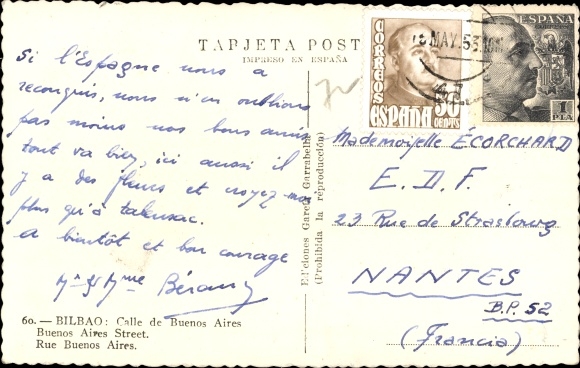 TARJETA POST
IMPRESO EN ESPAÑA
Si l'Espagne nous a
reconquis, nous n'en oublions
pas moins nos bons amis
tout va bien, ici aussi il
y a des fleurs et croyez-moi
plus qu'à
a bientôt et bon courage
Mr et Mme
60. — BILBAO: Calle de Buenos Aires
Buenos Aires Street.
Rue Buenos Aires.
Ediciones García Garrabella
(Prohibida la reproducción)
CORREOS
ESPAÑA
50
CENTS
MAY. 53
ESPAÑA
1
PTA
Mademoiselle ÉCORCHARD
E. D. F.
23 Rue de Strasbourg
NANTES
B.P. 52
(Francia)